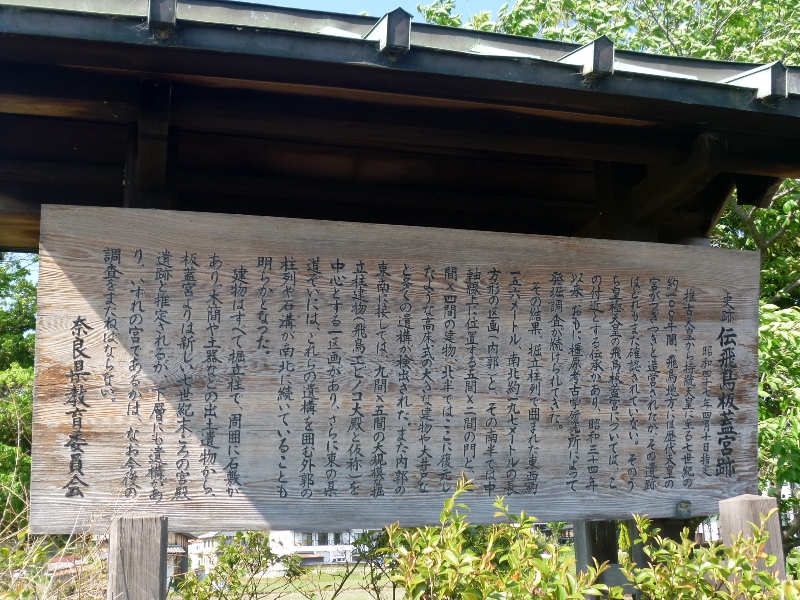 史跡 伝飛鳥板蓋宮跡
昭和四十七年四月十日指定
推古天皇から持統天皇に至る七世紀の
約一〇〇年間、飛鳥地方には歴代天皇の
宮がつぎつぎと造営されたが、その遺跡
はどれもまだ確認されていない。そのう
ち皇極天皇の飛鳥板蓋宮については、こ
の付近とする伝承があり、昭和三十四年
以来、おもに橿原考古学研究所によって
発掘調査が続けられてきた。
その結果、掘立柱列で囲まれた東西約
一五六メートル、南北約一九七メートルの長
方形の区画(内郭)と、その南半では中
軸線上に位置する五間×二間の門と、
間×四間の建物、北半ではここに復元し
たような高床式の大きな建物や大井戸な
ど多くの遺構が検出された。また内郭の
東南に接しては、九間×五間の大規模な掘
立柱建物(飛鳥エビノコ大殿と仮称)を
中心とする一区画があり、さらに東の県
道ぞいには、これらの遺構を囲む外郭の
柱列や石溝が南北に続いていることも
明らかとなった。
建物はすべて掘立柱で、周囲に石敷が
あり、木簡や土器などの出土遺物から、
板蓋宮よりは新しい七世紀末ころの宮殿
遺跡と推定されるが、下層にも遺構があ
り、いずれの宮であるかは、なお今後の
調査をまたねばならない。
奈良県教育委員会